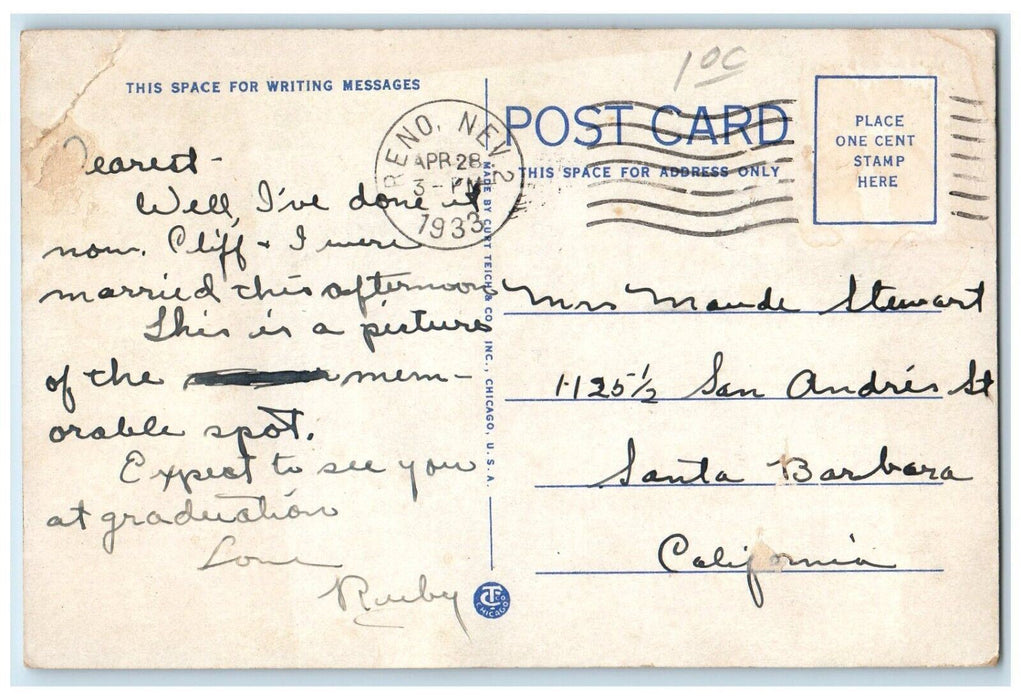 THIS SPACE FOR WRITING MESSAGES
earest -
Well, I've done it
now. Cliff + I were
married this afternoon
This is a picture
of the mem-
orable spot.
Expect to see you
at graduation
Love
Ruby
RENO, NEV. 2
APR 28
3 - PM
1933
MADE BY CURT TEICH & CO. INC., CHICAGO, U.S.A.
CTCO
CHICAGO
10C
POST CARD
THIS SPACE FOR ADDRESS ONLY
PLACE
ONE CENT
STAMP
HERE
Mrs Maude Stewart
1125½ San Andrés St
Santa Barbara
California